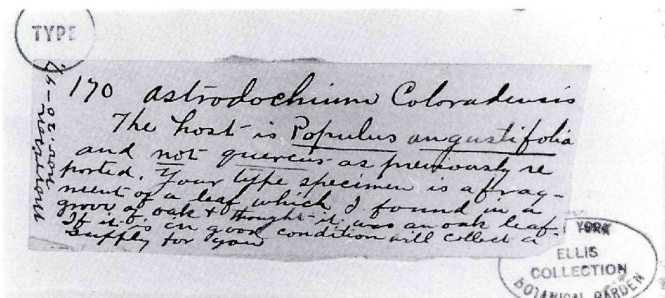 TYPE
170 Astrodochium Coloradensis
The host is Populus angustifolia
and not quercus as previously re
ported. Your type specimen is a frag-
ment of a leaf which I found in a
grove of oak & thought it was an oak leaf.
If it is in good condition will collect a
supply for you
Morrison
Nov. 20
YORK
ELLIS
COLLECTION
BOTANICAL GARDEN